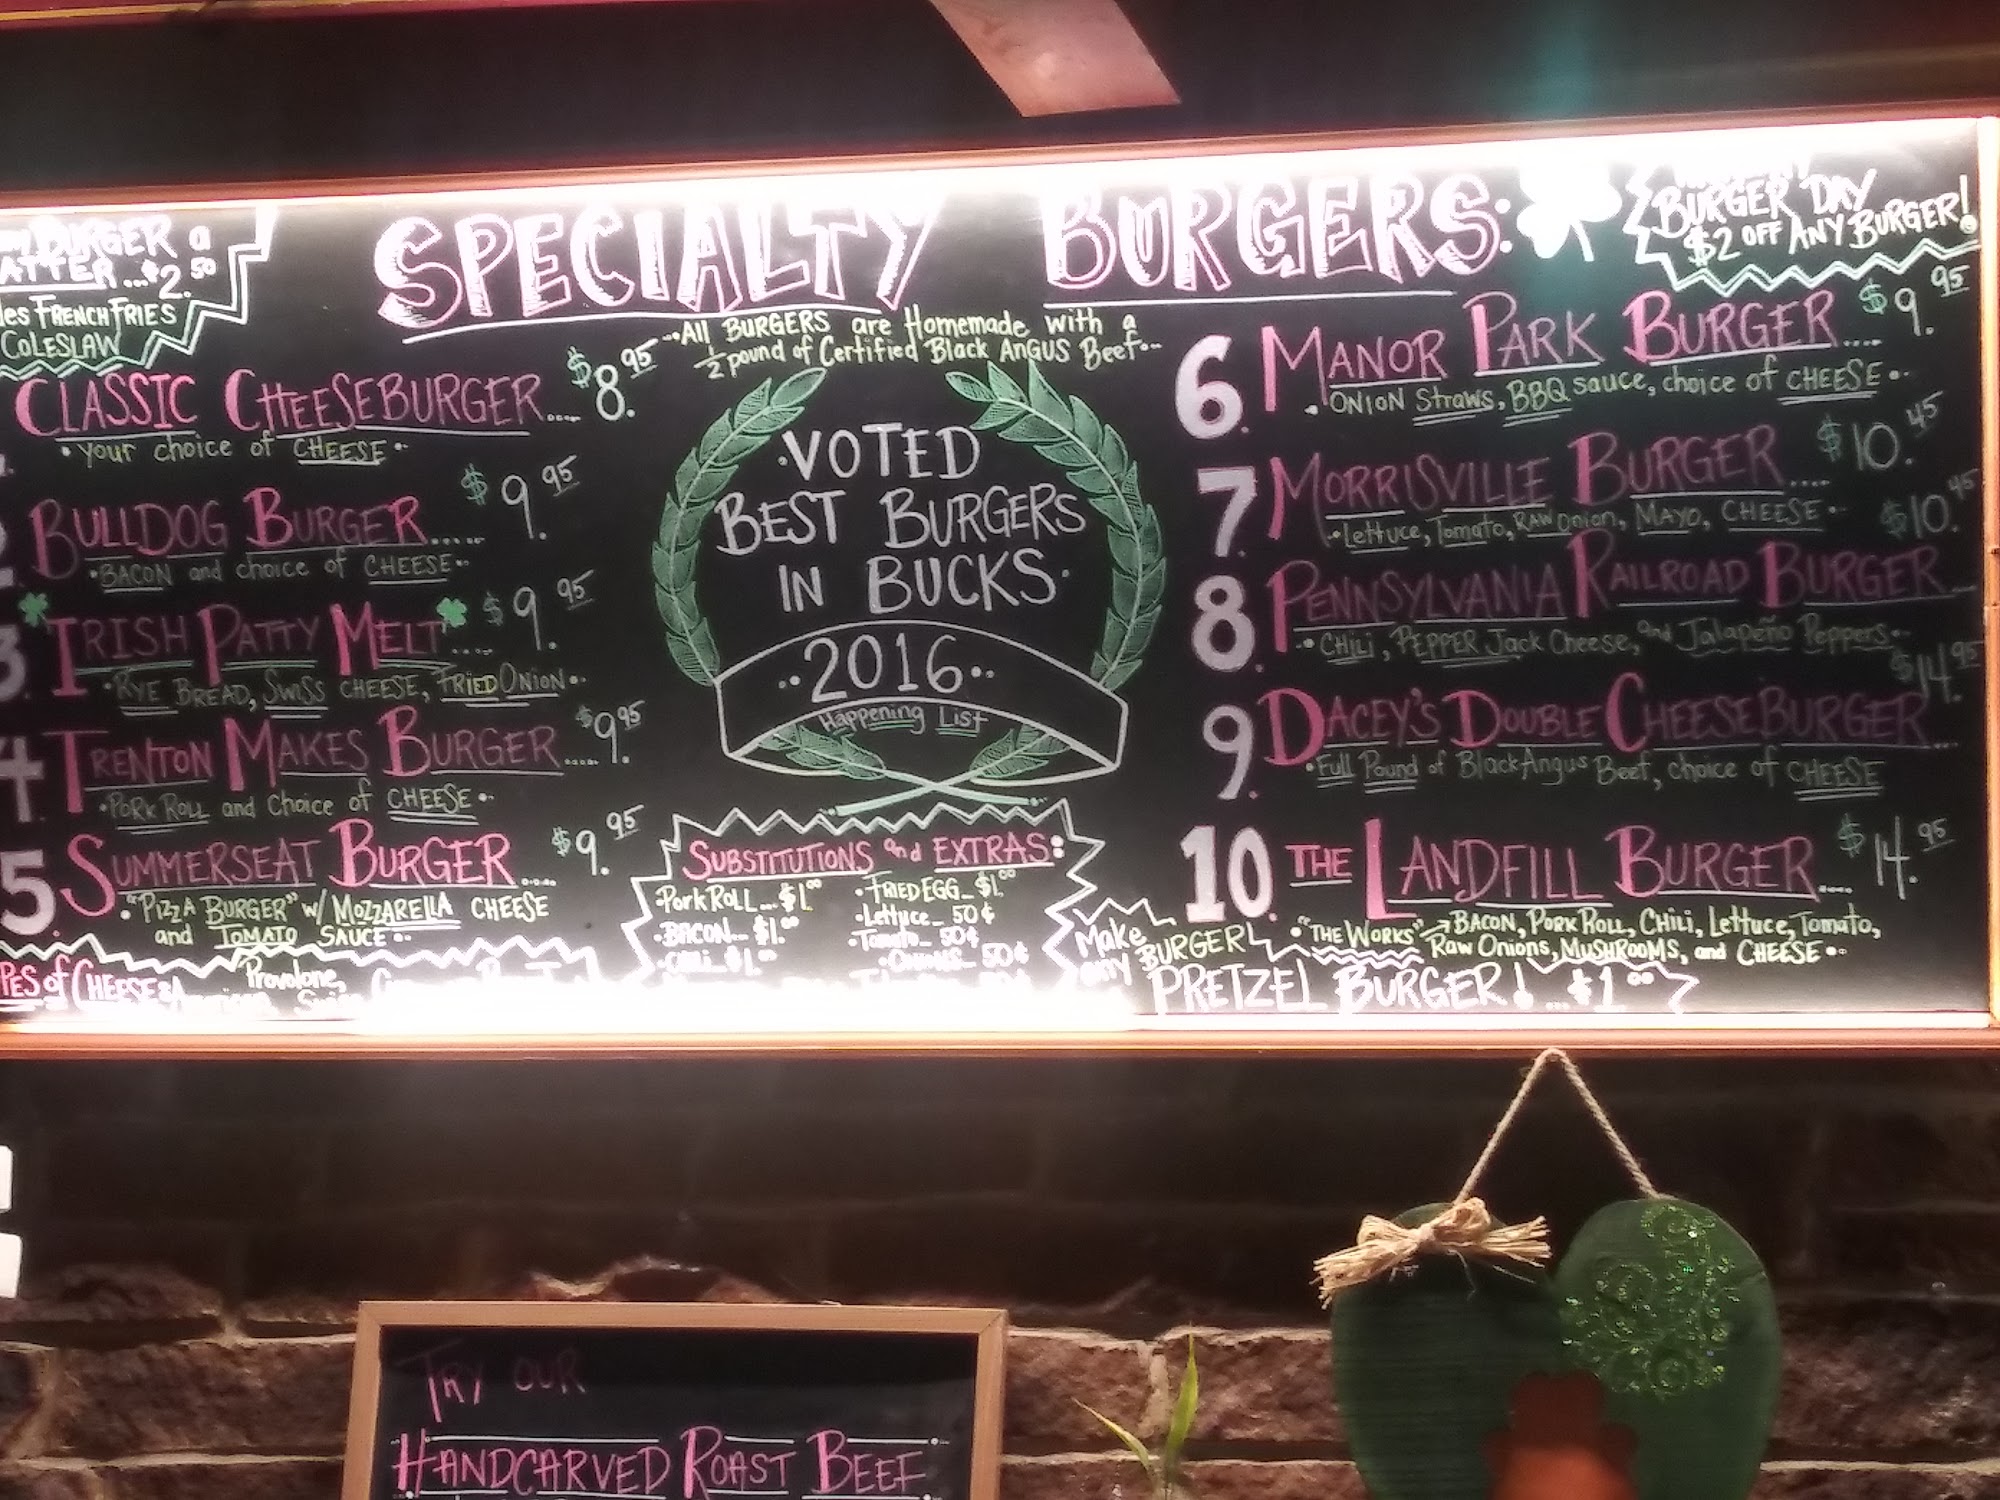 BURGER a
$2.50
FRENCH FRIES
COLESLAW
SPECIALTY BURGERS:
BURGER DAY
$2 OFF ANY BURGER!
••All BURGERS are Homemade with a
½ pound of Certified Black ANGUS Beef••
CLASSIC CHEESEBURGER.... $8.95
• your choice of CHEESE •
BULLDOG BURGER..... $9.95
• BACON and choice of CHEESE •
3. IRISH PATTY MELT.... $9.95
• RYE BREAD, SWISS CHEESE, FRIED ONION •
4 TRENTON MAKES BURGER..... $9.95
• PORK ROLL and choice of CHEESE •
5. SUMMERSEAT BURGER.... $9.95
• "PIZZA BURGER" w/ MOZZARELLA CHEESE
and TOMATO SAUCE •
of CHEESE:
Provolone,
• VOTED
BEST BURGERS
IN BUCKS •
••2016••
Happening List
SUBSTITUTIONS and EXTRAS:
• Pork ROLL... $1.00
• BACON... $1.00
• CHILI... $1.00
• FRIED EGG... $1.00
• Lettuce... 50¢
• Tomato... 50¢
• ONIONS... 50¢
6. MANOR PARK BURGER.... $9.95
• ONION Straws, BBQ sauce, choice of CHEESE •
7. MORRISVILLE BURGER.... $10.45
• Lettuce, Tomato, RAW Onion, MAYO, CHEESE •
8. PENNSYLVANIA RAILROAD BURGER... $10.45
• CHILI, PEPPER Jack Cheese, and Jalapeño Peppers •
9. DACEY'S DOUBLE CHEESEBURGER... $14.95
• Full Pound of Black Angus Beef, choice of CHEESE
10. THE LANDFILL BURGER.... $14.95
• "THE WORKS" → BACON, PORK ROLL, CHILI, Lettuce, Tomato,
Raw Onions, MUSHROOMS, and CHEESE •
Make
any BURGER
PRETZEL BURGER! ...$1.00
TRY OUR
HANDCARVED ROAST BEEF